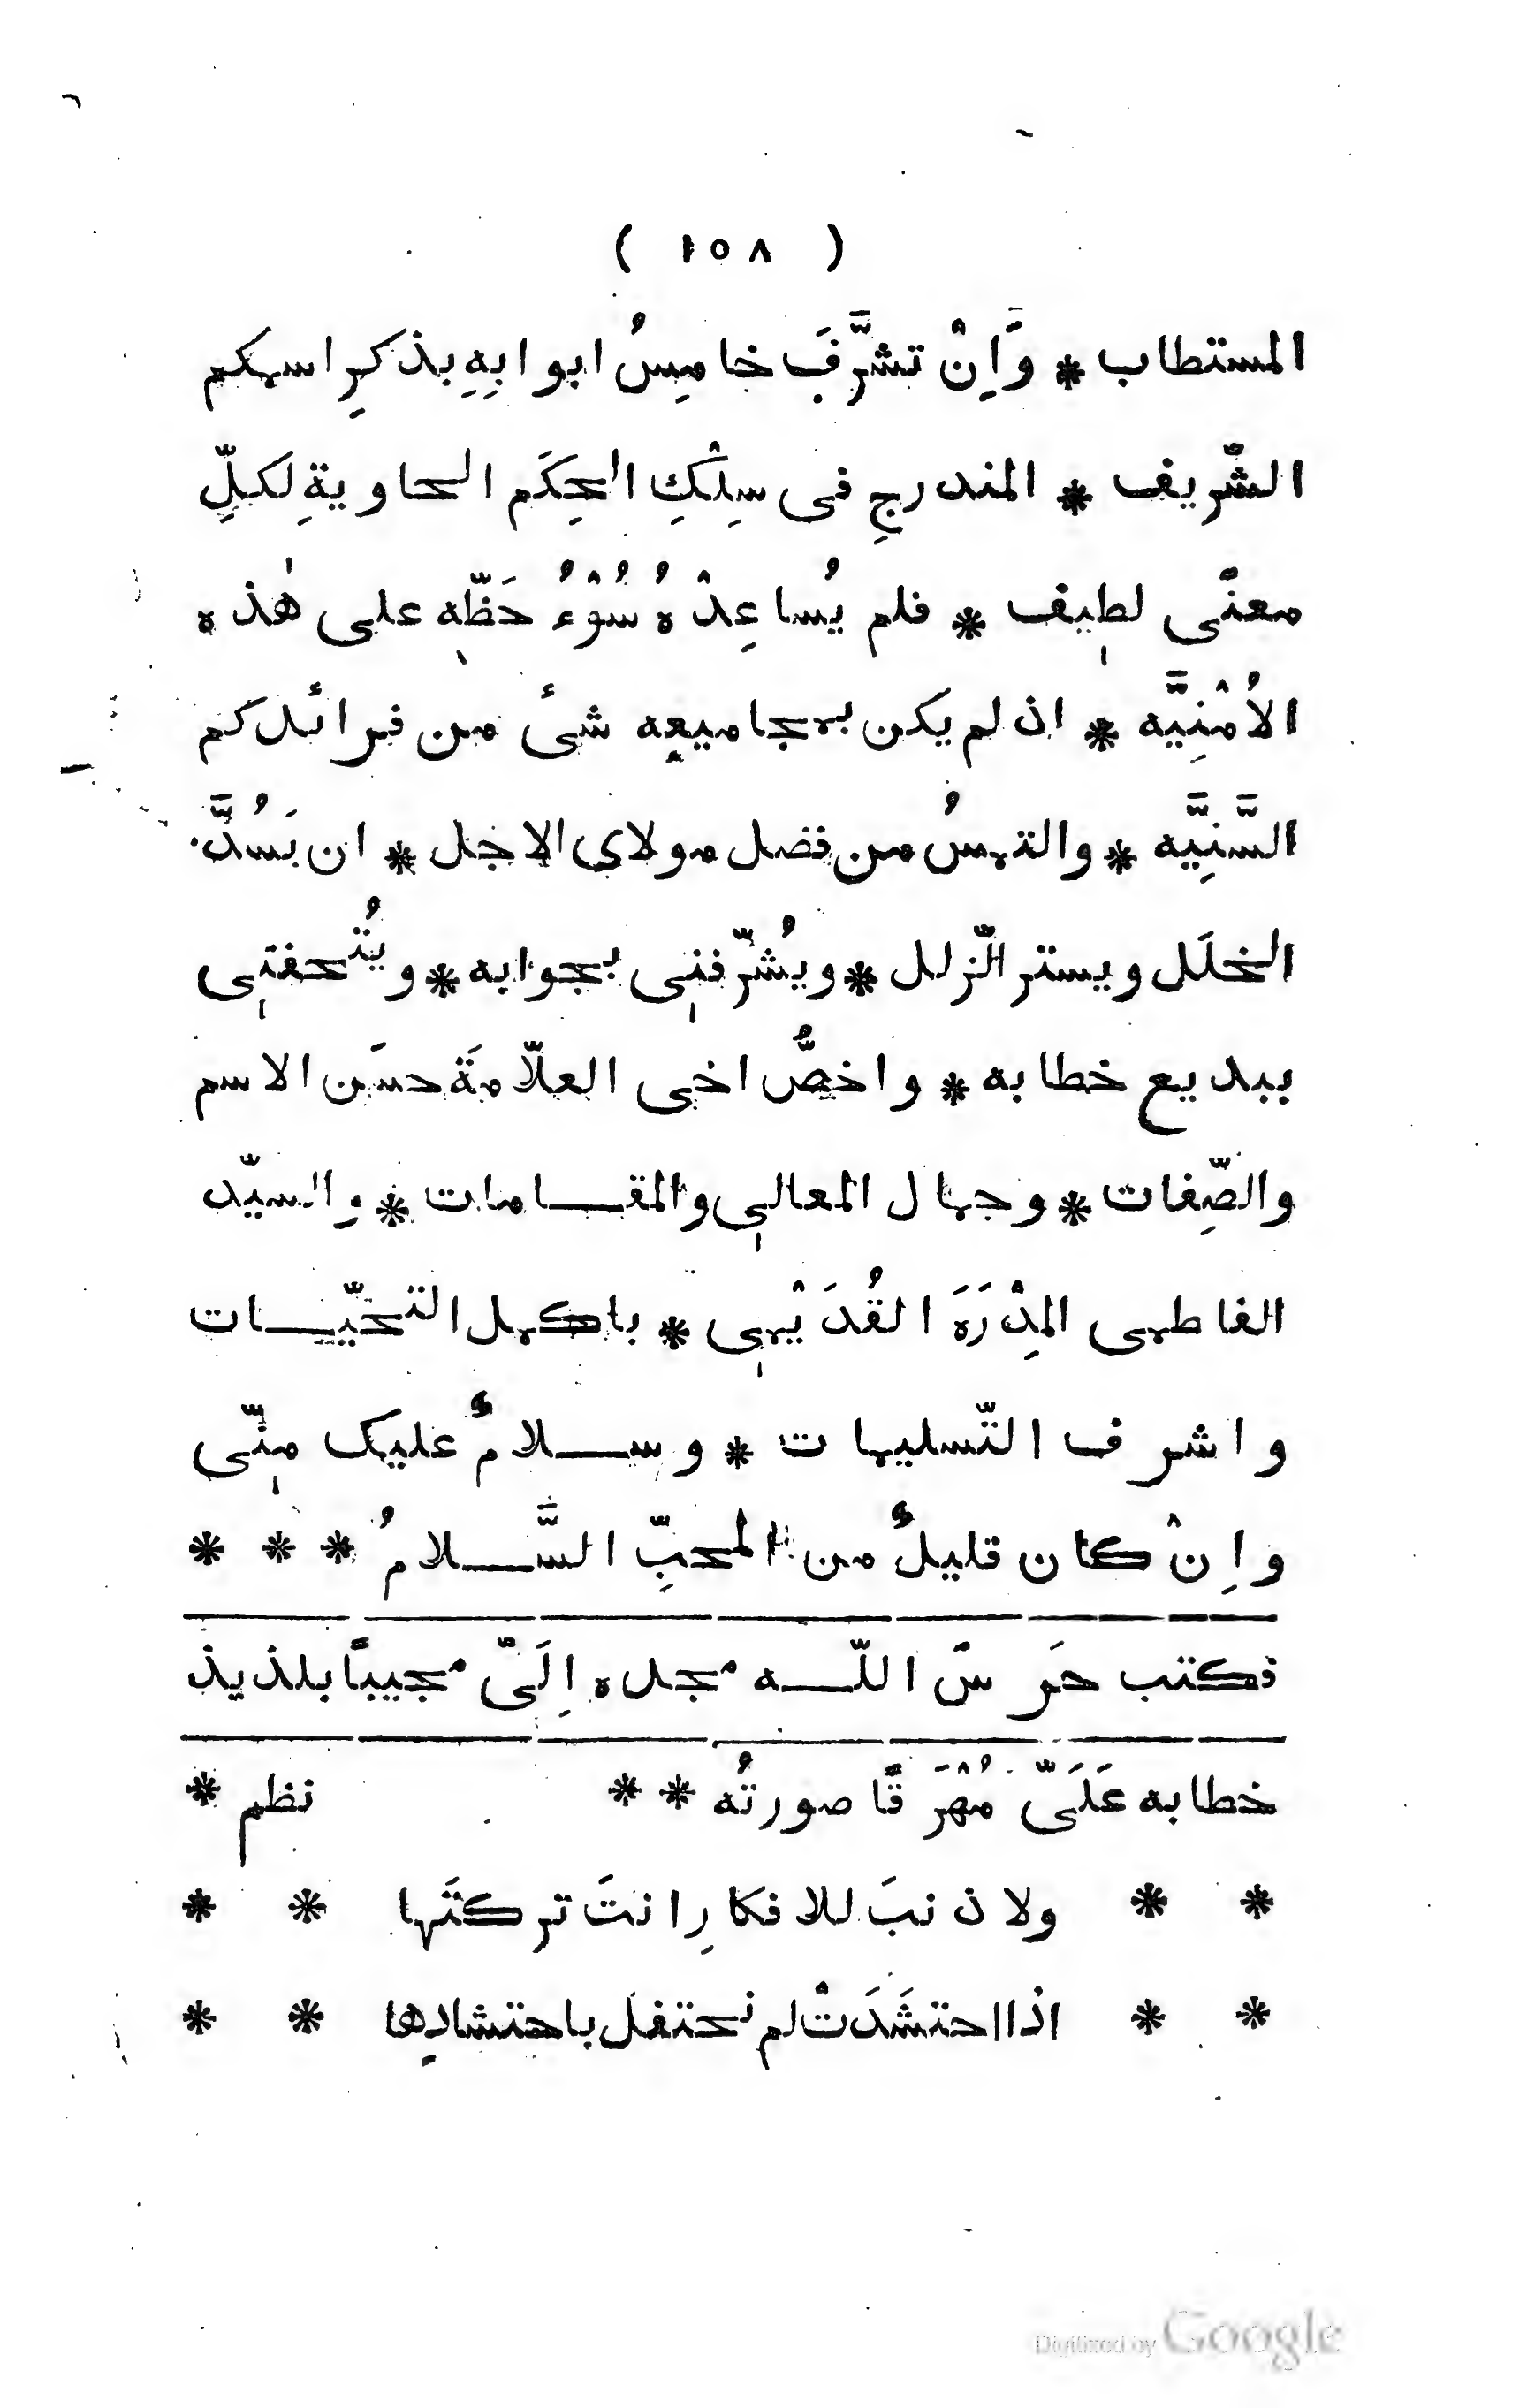 ( ١٥٨ )
المستطاب * وَاِنْ تشرَّفَ خامِسُ ابوابِهِ بذكرِ اسمكم
الشّريف * المندرجِ فى سِلْكِ الحِكَم الحاويةِ لكلِّ
معنًى لطيف * فلم يُساعِدْهُ سُوْءُ حَظّه على هٰذه
الاُمْنِيَّه * اذ لم يكن بمجاميعه شئ من فرائدكم
السَّنِيَّه * والتمسُ من فضل مولاي الاجل * ان يَسُدَّ
الخلَل ويستر الزّلل * ويُشرّفنى بجوابه * ويُتحفنى
ببديع خطابه * واخصُّ اخى العلّامةَ حسَن الاسم
والصِّفات * وجمال المعالى والمقامات * والسيّد
الفاطمى المِدْرَهَ القُدَيْمِى * باكمل التحيّات
واشرف التّسليمات * وسلامٌ عليك منّى
واِنْ كان قليلٌ من المحبِّ السَّلامُ * * *
فكتب حَرسَ اللّه مجده اِلَىّ مجيبًا بلذيذ
خطابه عَلَىّ مُهْرَقًا صورتُه * * نظم *
* * ولا ذنبَ للافكارِ انتَ تركتَها * *
* * اذا احتشَدَتْ لم تحتفل باحتشادِها * *
Digitized by Google